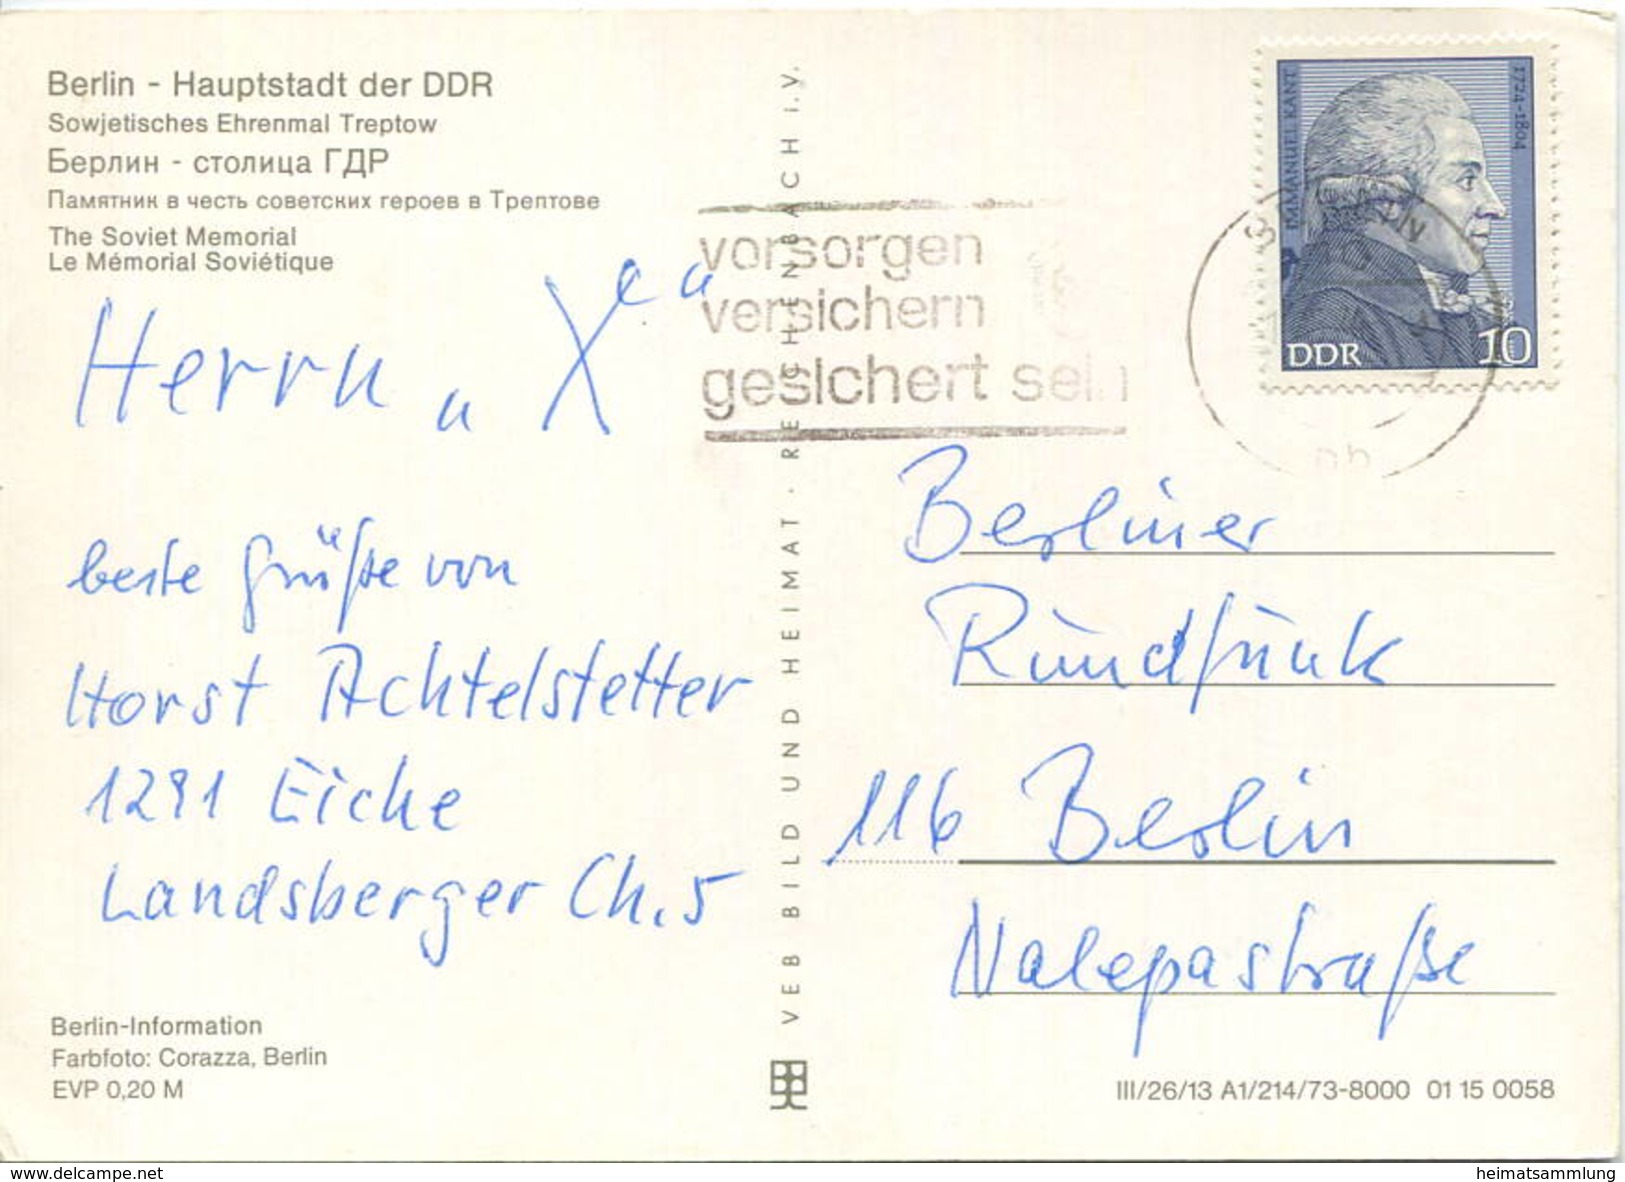 Berlin - Hauptstadt der DDR
Sowjetisches Ehrenmal Treptow
Берлин - столица ГДР
Памятник в честь советских героев в Трептове
The Soviet Memorial
Le Mémorial Soviétique
Herrn u X
beste Grüße von
Horst Achtelstetter
1291 Eiche
Landsberger Ch. 5
Berlin-Information
Farbfoto: Corazza, Berlin
EVP 0,20 M
VEB BILD UND HEIMAT · REICHENBACH i.V.
vorsorgen
versichern
gesichert sein
IMMANUEL KANT
1724-1804
DDR 10
Berliner
Rundfunk
116 Berlin
Nalepastraße
III/26/13 A1/214/73-8000 01 15 0058
www.delcampe.net
heimatsammlung